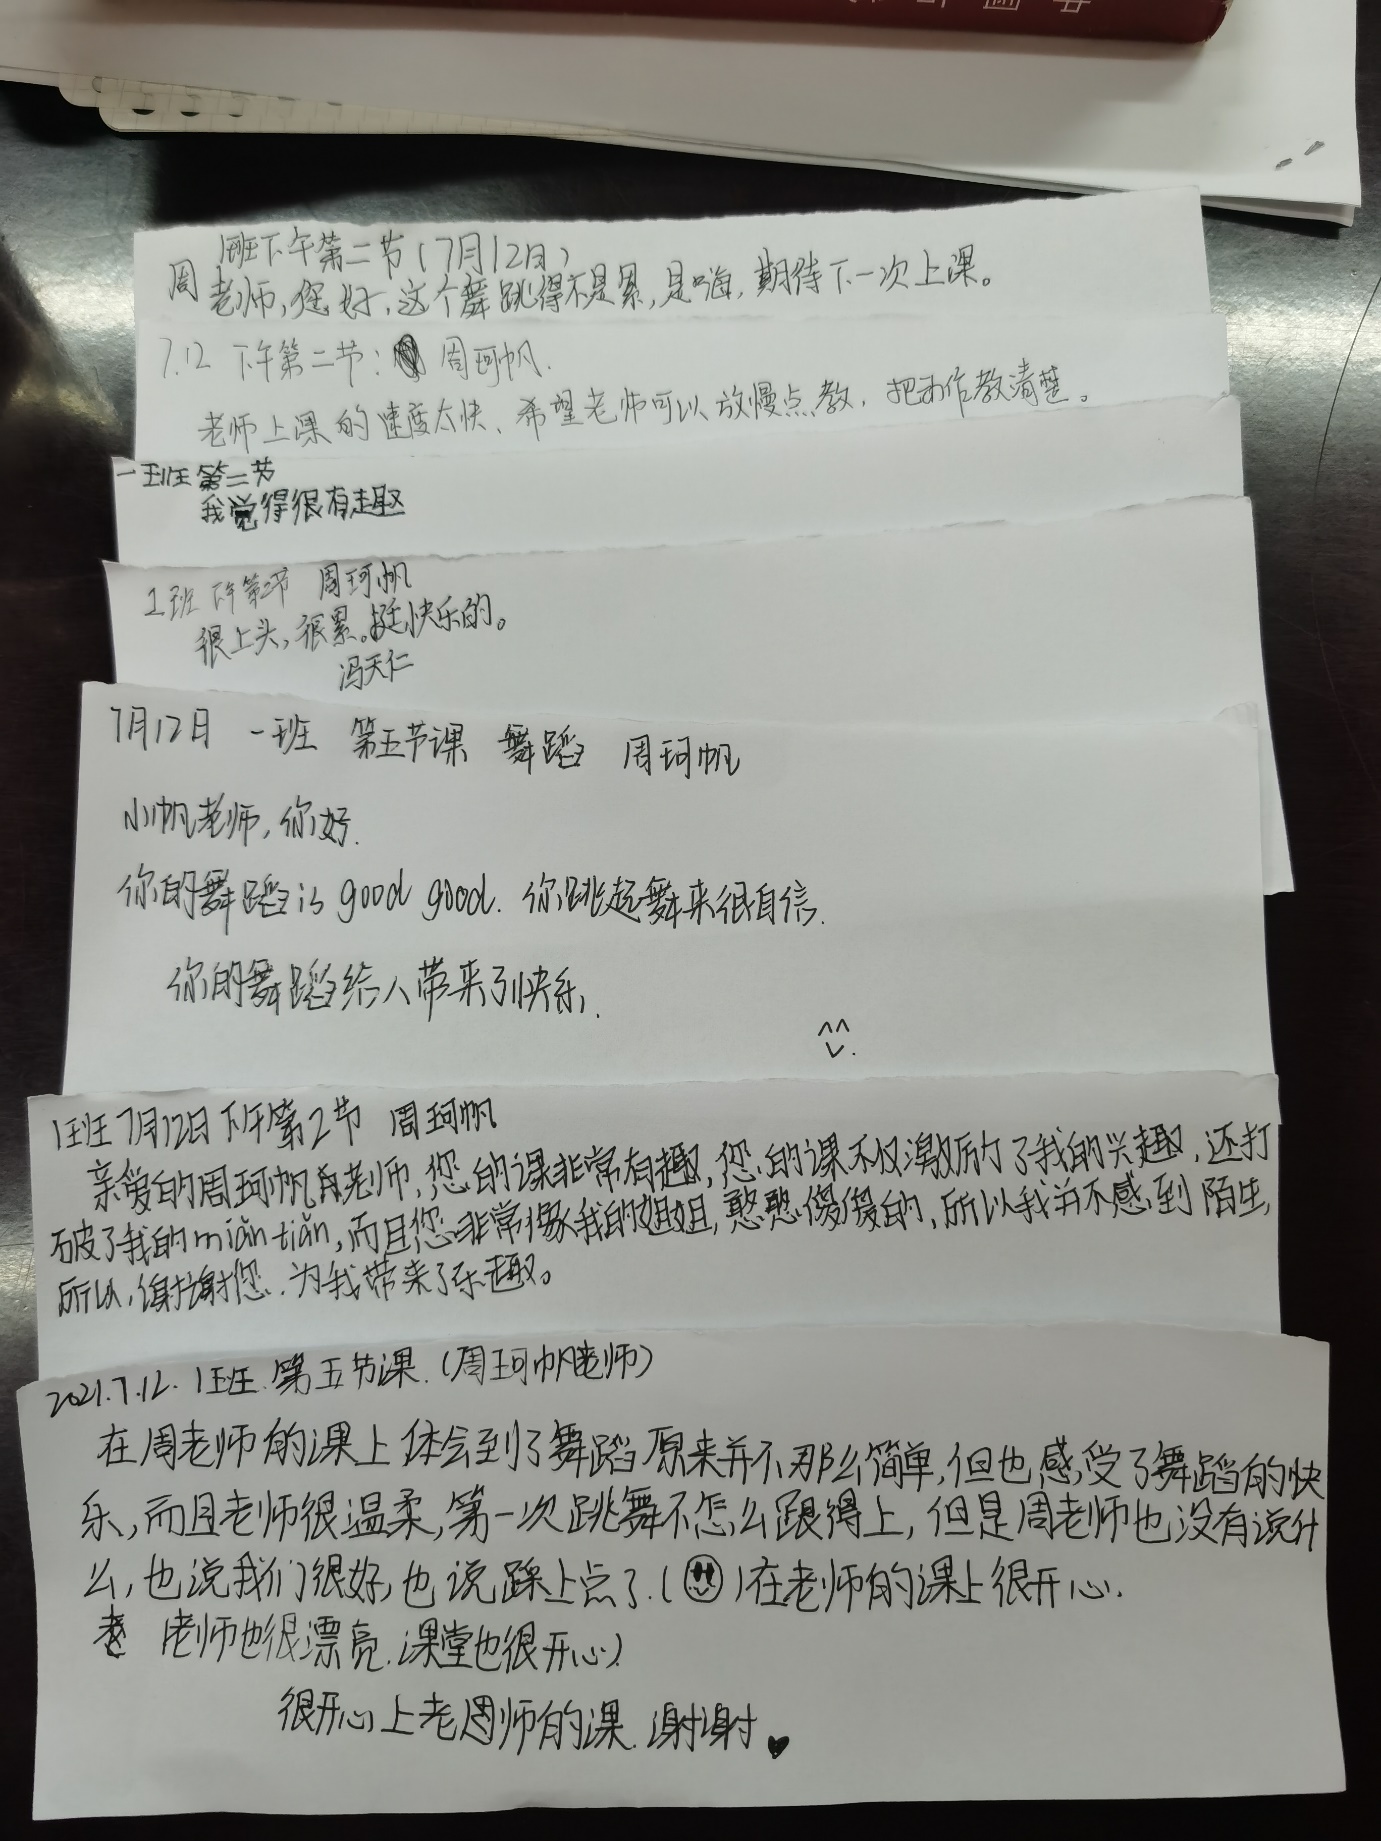 1班下午第二节(7月12日)
周老师,您好,这个舞跳得不是累,是嗨,期待下一次上课。
7.12 下午第二节: 周珂帆.
老师上课的速度太快、希望老师可以放慢点教,把动作教清楚。
一班第二节
我觉得很有趣
1班 下午第2节 周珂帆
很上头,很累。挺快乐的。
冯天仁
7月12日 一班 第五节课 舞蹈 周珂帆
小帆老师,你好.
你的舞蹈is good good. 你跳起舞来很自信.
你的舞蹈给人带来了快乐.
1班7月12日下午第2节 周珂帆
亲爱的周珂帆老师,您的课非常有趣,您的课不仅激励了我的兴趣,还打
破了我的miǎn tiǎn,而且您非常像我的姐姐,憨憨傻傻的,所以我并不感到陌生,
所以,谢谢您.为我带来了乐趣。
2021.7.12. 1班.第五节课.(周珂帆老师)
在周老师的课上体会到了舞蹈原来并不那么简单,但也感受了舞蹈的快
乐,而且老师很温柔,第一次跳舞不怎么跟得上,但是周老师也没有说什
么,也说我们很好,也说踩上点了.( )在老师的课上很开心.
老师也很漂亮.课堂也很开心)
很开心上老周师的课.谢谢